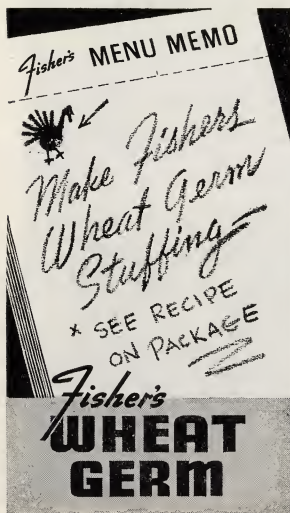 Fisher's MENU MEMO
Make Fishers
Wheat Germ
Stuffing
* SEE RECIPE
ON PACKAGE
Fisher's
WHEAT
GERM